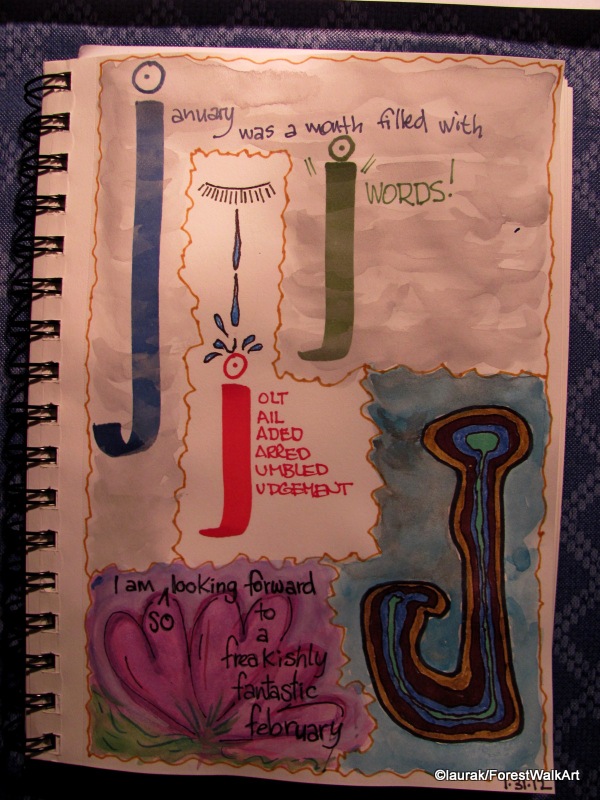 january was a month filled with
"j" WORDS!
jOLT
AIL
ADED
ARRED
UMBLED
UDGEMENT
I am so looking forward
to
a
freakishly
fantastic
february
J
1.31.12
©laurak/ForestWalkArt